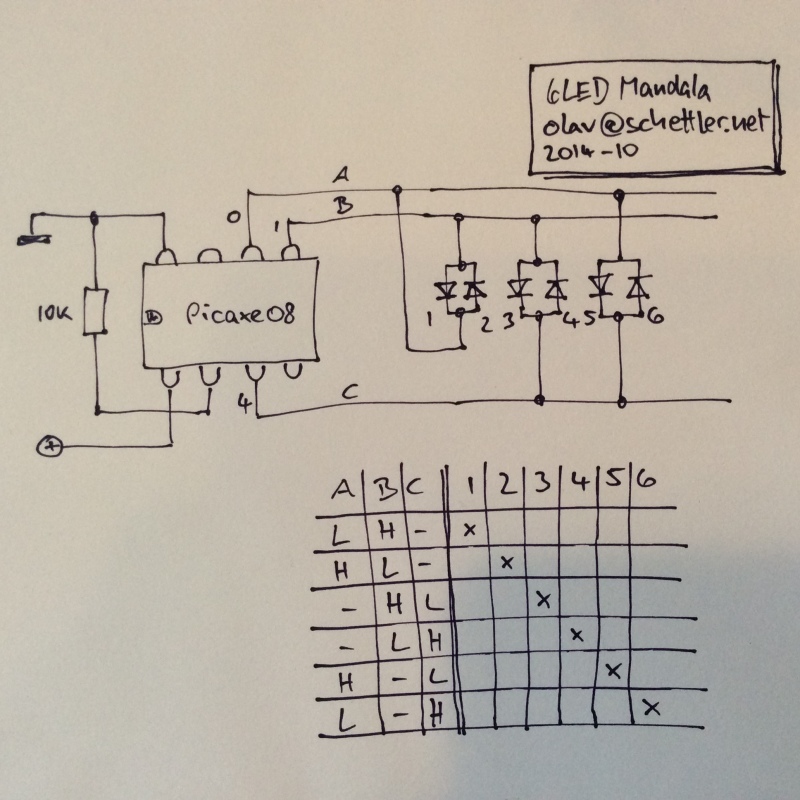 6LED Mandala
olav@schettler.net
2014-10
A
0
B
1
10K
Picaxe08
1 2 3 4 5 6
4
C
+
A B C 1 2 3 4 5 6
L H - x
H L - x
- H L x
- L H x
H - L x
L - H x